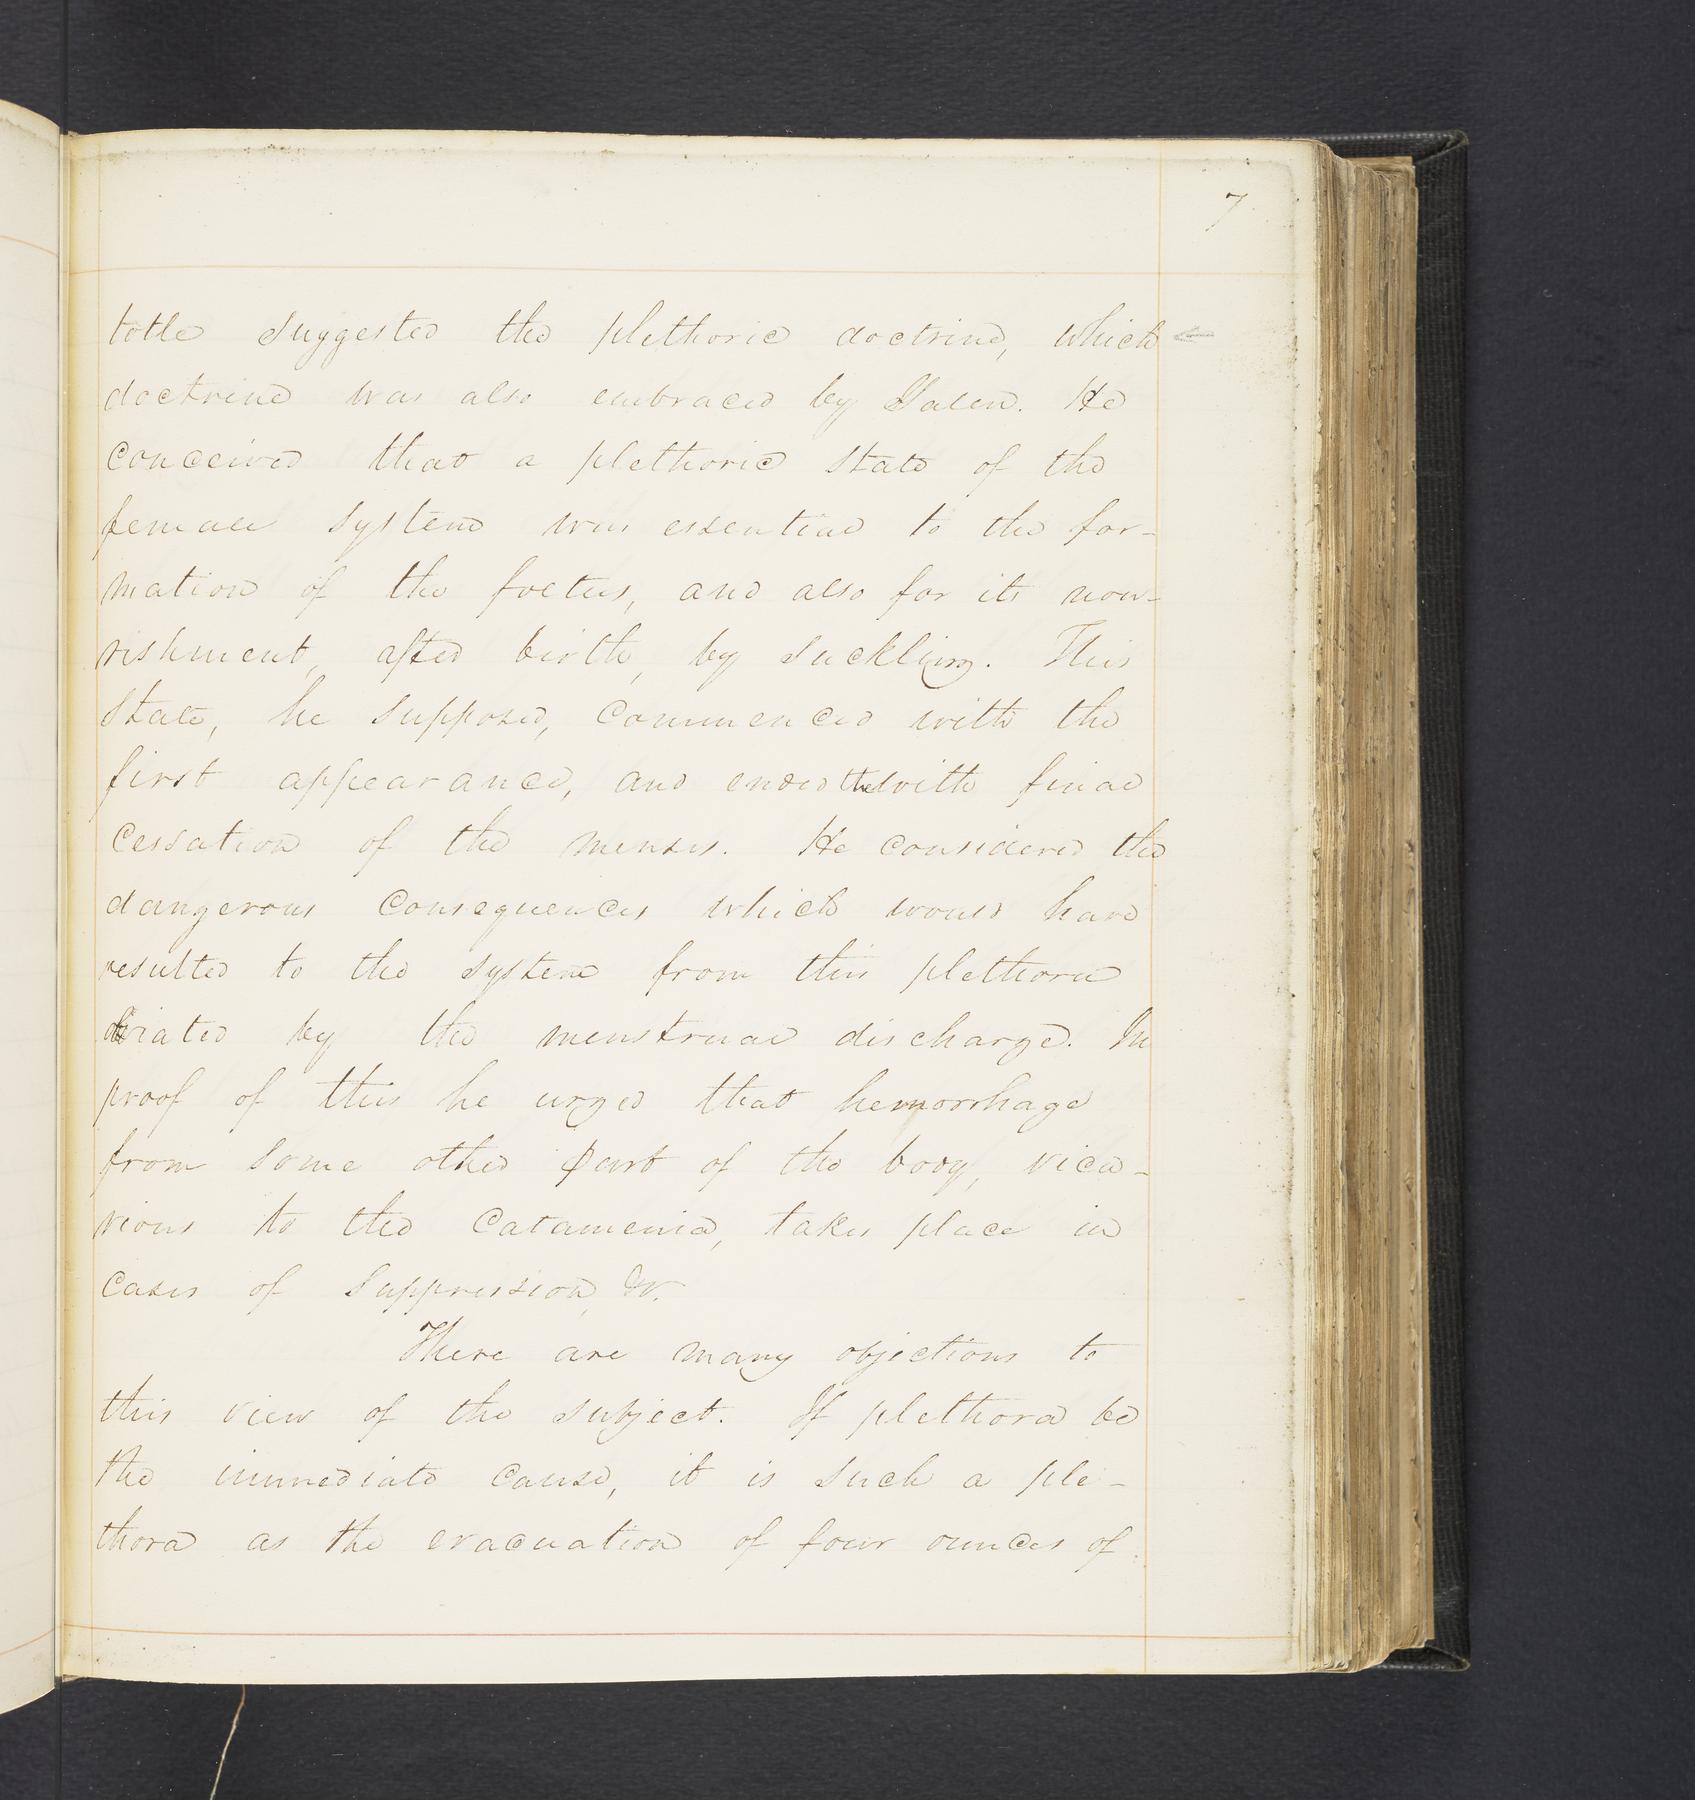 7
totle suggested the plethoric doctrine, which
doctrine was also embraced by Galen. He
conceived that a plethoric state of the
female system was essential to the for-
mation of the foetus, and also for its nou-
rishment, after birth, by suckling. This
state, he supposed, commenced with the
first appearance, and ended the with final
cessation of the menses. He considered the
dangerous consequences which would have
resulted to the system from this plethora
obviated by the menstrual discharge. In
proof of this he urged that hemorrhage
from some other part of the body, vica-
rious to the Catamenia, takes place in
cases of suppression, &c.
There are many objections to
this view of the subject. If plethora be
the immediate cause, it is such a ple-
thora as the evacuation of four ounces of